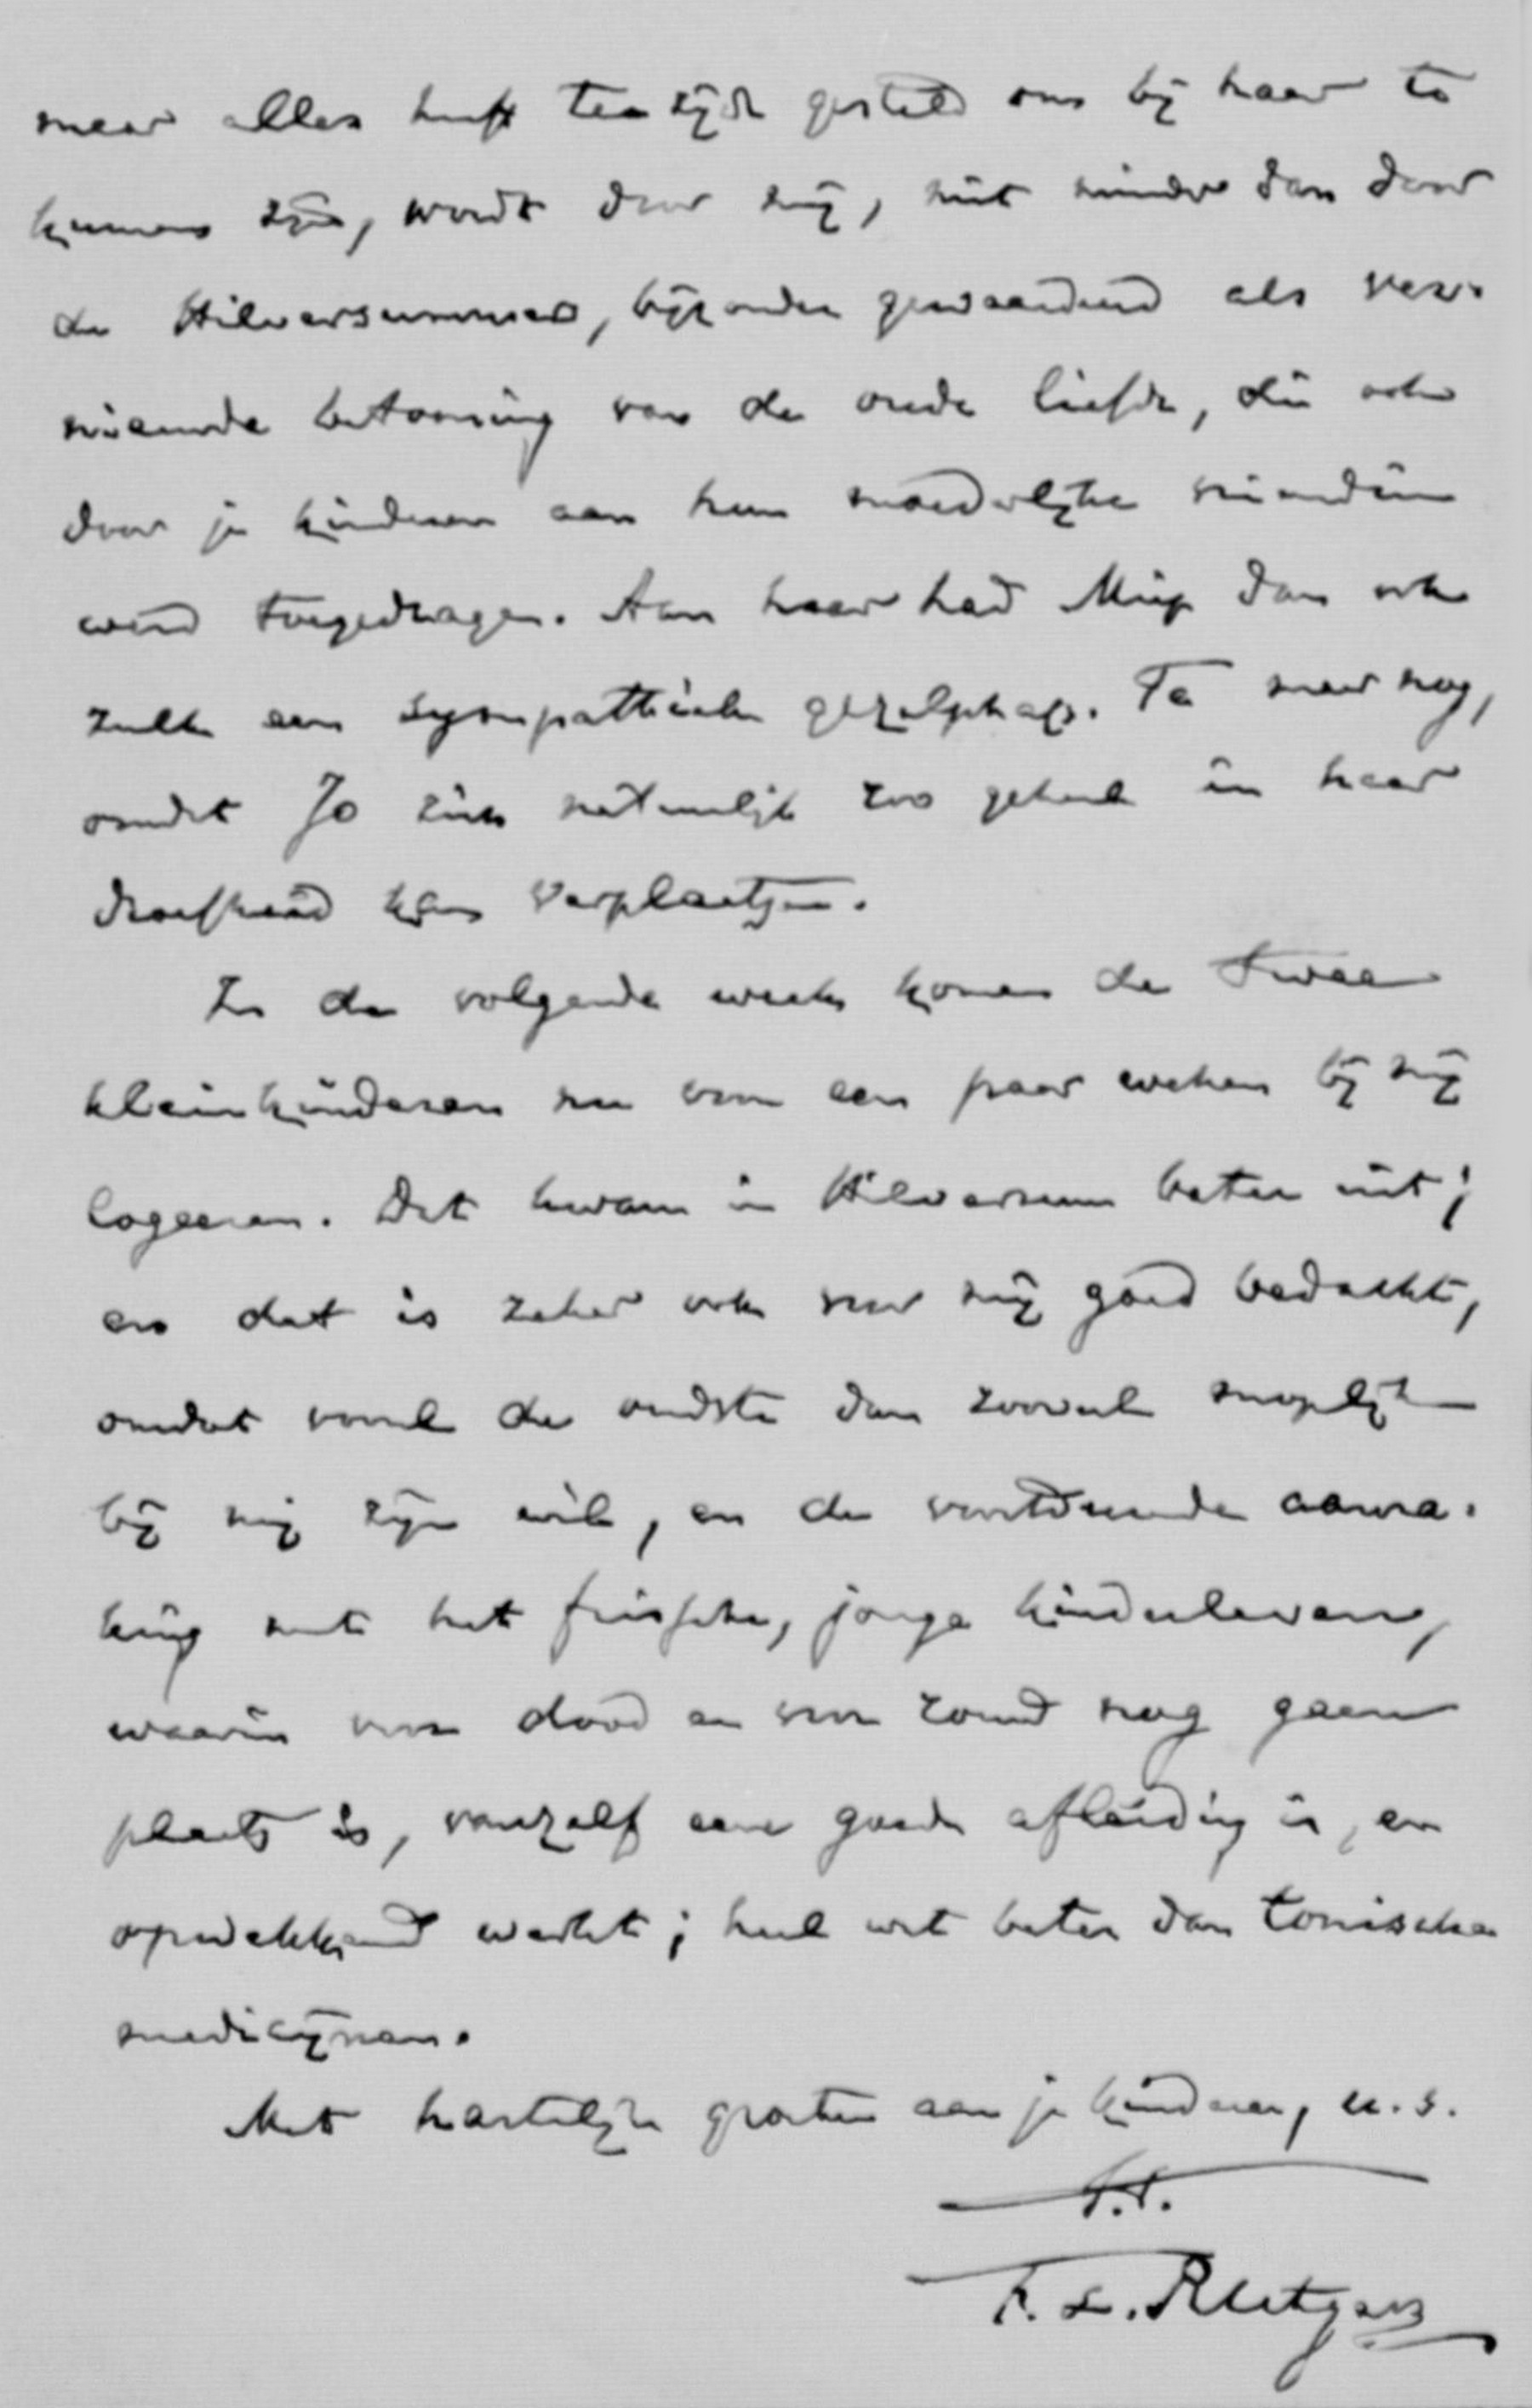 meer alles heeft ter zijde gesteld om bij haar te
kunnen zijn, wordt door mij, niet minder dan door
de Hilversummers, bijzonder gewaardeerd als ver-
nieuwde betooning van de oude liefde, die ook
door je kinderen aan hun moederlijke vriendin
werd toegedragen. Aan haar had Miep dan ook
zulk een sympathiek gezelschap. Te meer nog,
omdat Jo zich natuurlijk zoo geheel in haar
droefheid kan verplaatsen.
In de volgende week komen de twee
kleinkinderen nu voor een paar weken bij mij
logeeren. Dat kwam in Hilversum beter uit;
en dat is zeker ook voor mij goed bedacht,
omdat vooral de oudste dan zooveel mogelijk
bij mij zijn wil, en de voortdurende aanra-
king met het frissche, jonge kinderleven,
waarin voor dood en voor zonde nog geen
plaats is, vanzelf eene goede afleiding is, en
opwekkend werkt; heel wat beter dan tonische
medicijnen.
Met hartelijke groeten aan je kinderen, u. s.
t.t.
F. L. Rutgers